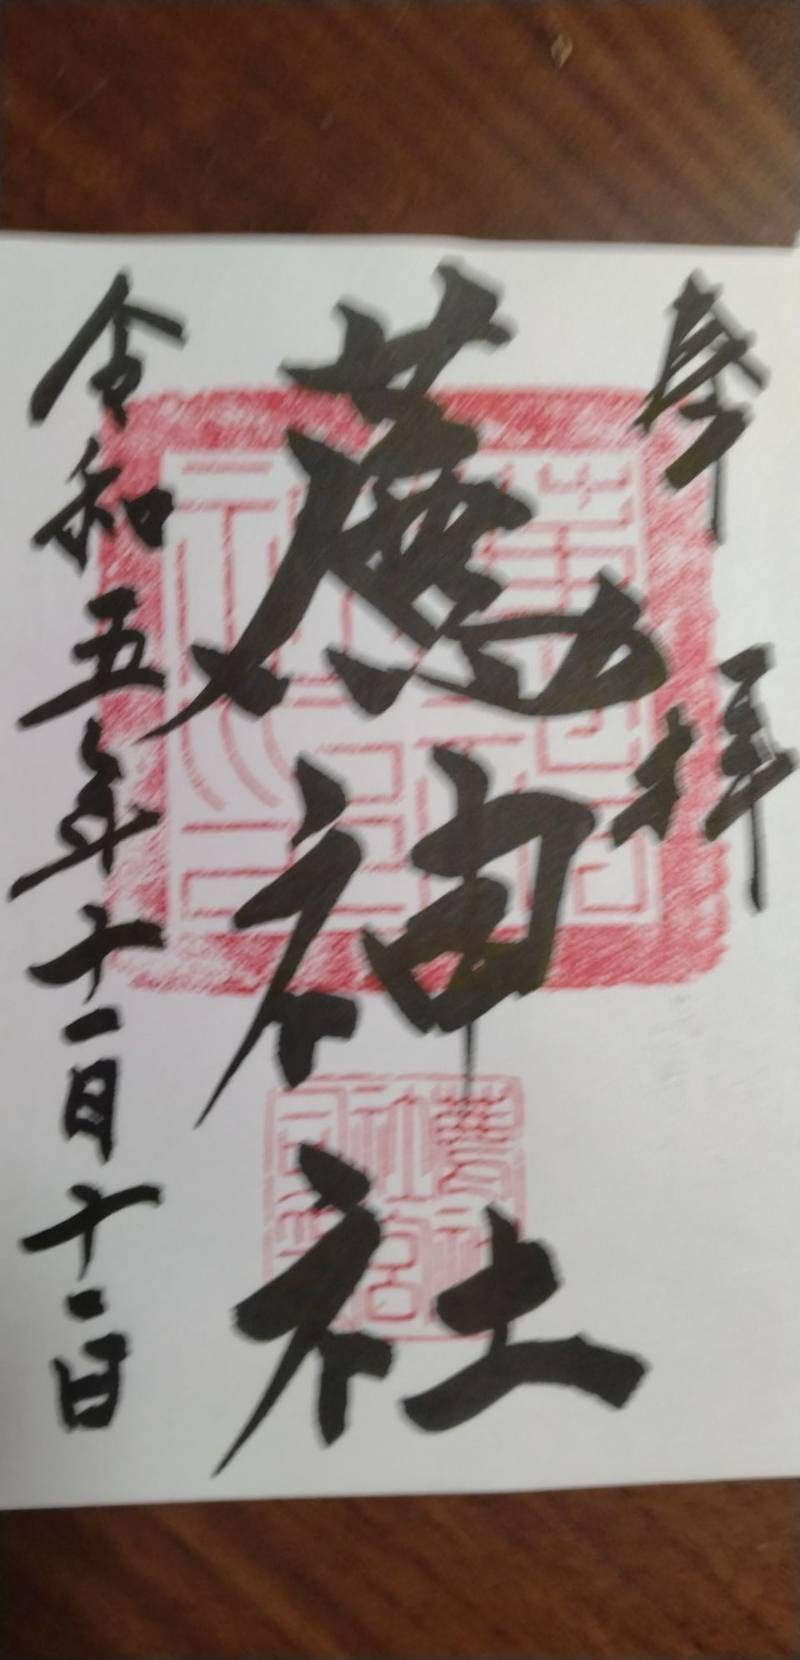 奉拝
薦神社
令和五年十一月十一日